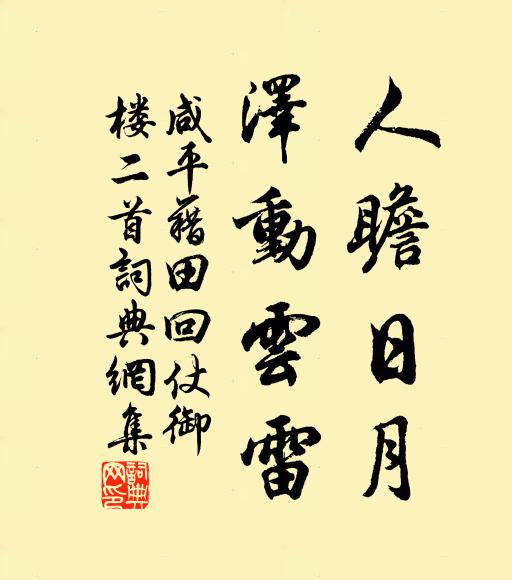 人瞻日月
澤動雲雷
咸平藉田回仗御
楼二首詞典網集
詞典网印